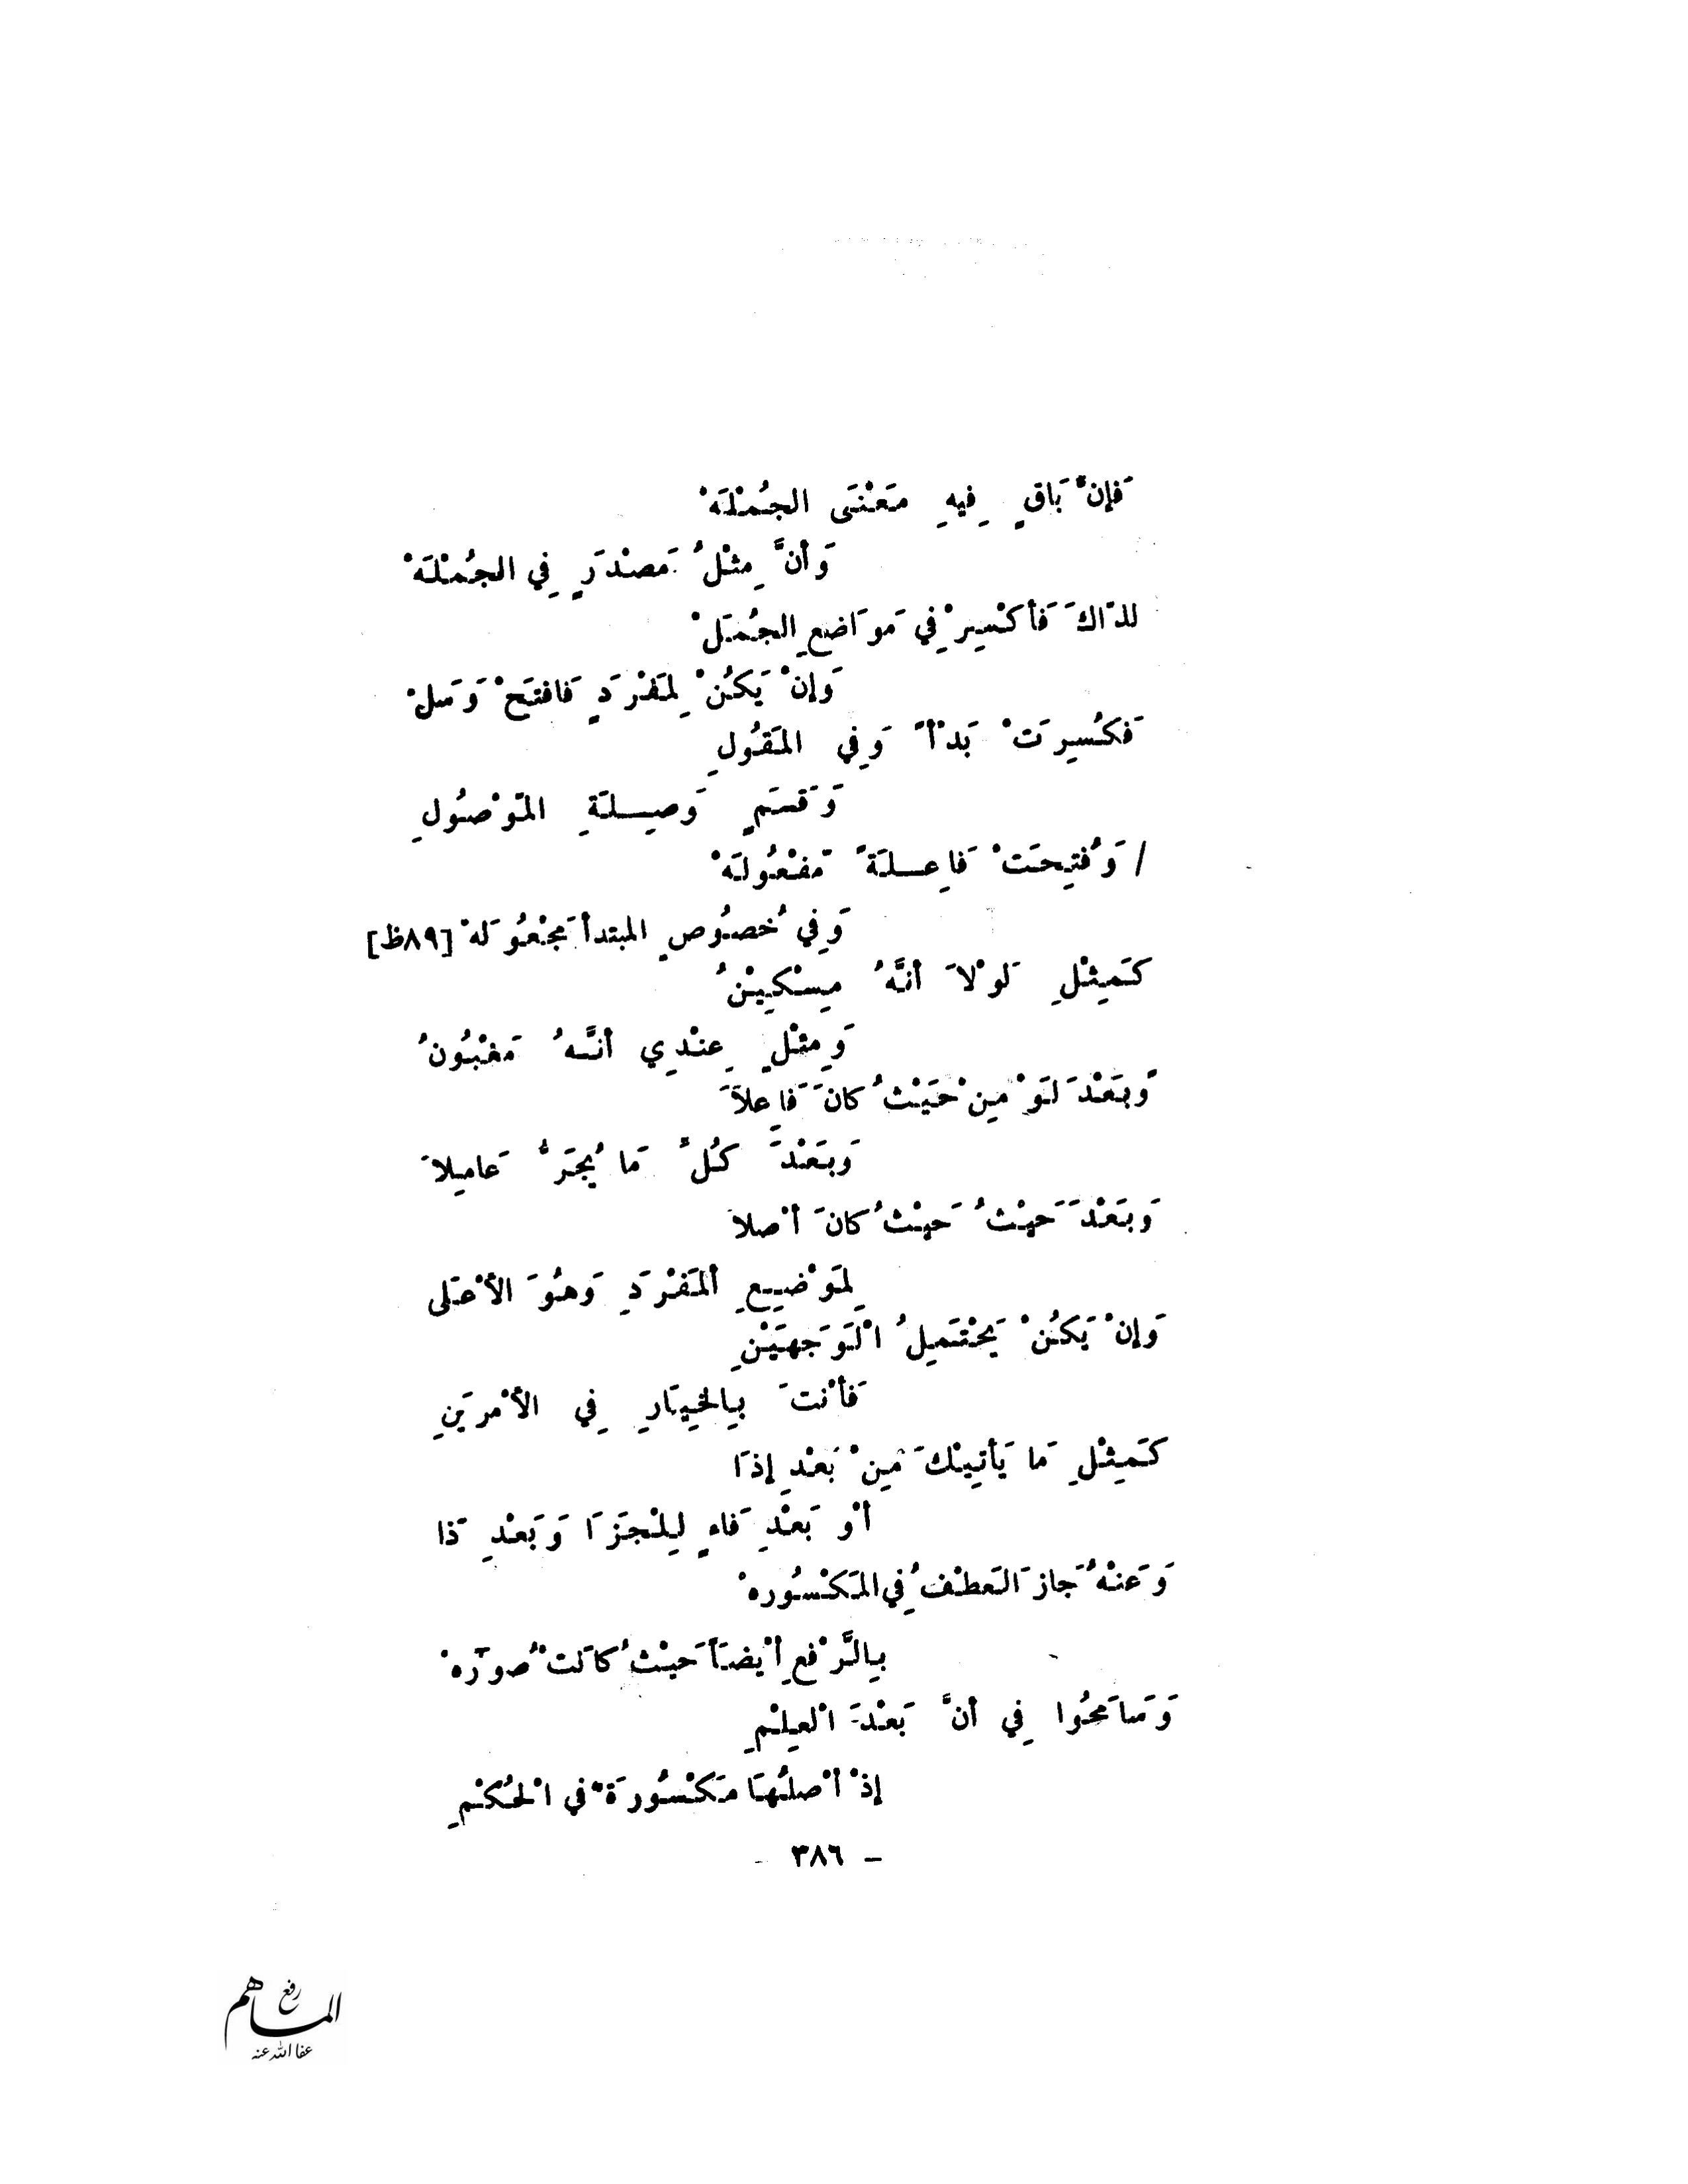 فَإِنَّ بَاقٍ فِيهِ مَعْنَى الجُمْلَهْ
وَأَنَّ مِثْلُ مَصْدَرٍ فِي الجُمْلَهْ
لذَاكَ فَأكْسِرْ فِي مَوَاضعِ الجُمَلْ
وَإنْ يَكُنْ لِمَفْرَدٍ فَافتَحْ وَسَلْ
فَكُسِرَتْ بَدْأً وَفِي المَقُولِ
وَقَسَمٍ وَصِلَةِ المَوْصُولِ
/ وَفُتِحَتْ فَاعِلَةً مَفْعُولَهْ
وَفِي خُصُوصٍ المبتدأ مَجْعُولَهْ [٨٩ظ]
كَمِثْلِ لَوْلاَ أنَّهُ مِسْكِيْنُ
وَمِثْلِ عِنْدِي أنَّهُ مَغْبُونُ
وَبَعْدَ لَوْ مِنْ حَيْثُ كانَ فَاعِلاَ
وَبَعْدَ كُلِّ مَا يُجَرُّ عَامِلاَ
وَبَعْدَ حَيْثُ حَيْثُ كانَ أصْلاَ
لِمَوْضِعِ ألمَفْرَدِ وَهُوَ الأعْلَى
وَإنْ يَكُنْ يَحْتَمِلُ الْوَجهَيْنِ
فَأنْتَ بِالخِيَارِ فِي الأمْرَيَنِ
كَمِثْلِ مَا يَأتِيْكَ مِنْ بَعْدِ إذَا
أوْ بَعْدِ فَاءٍ لِلْجَزَا وَبَعْدِ ذَا
وَعَنْهُ جَازَ العَطْفُ فِي المَكْسُورهْ
بِالرَّفْعِ أيْضَاً حَيْثُ كَانَتْ صُورَهْ
وَسَامَحُوا فِي أنَّ بَعْدَ الْعِلْمِ
إذْ أصْلُهَا مَكْسُورَةٌ في الْحُكْمِ
– ٣٨٦ –
رفع
المساهم
عفا الله عنه